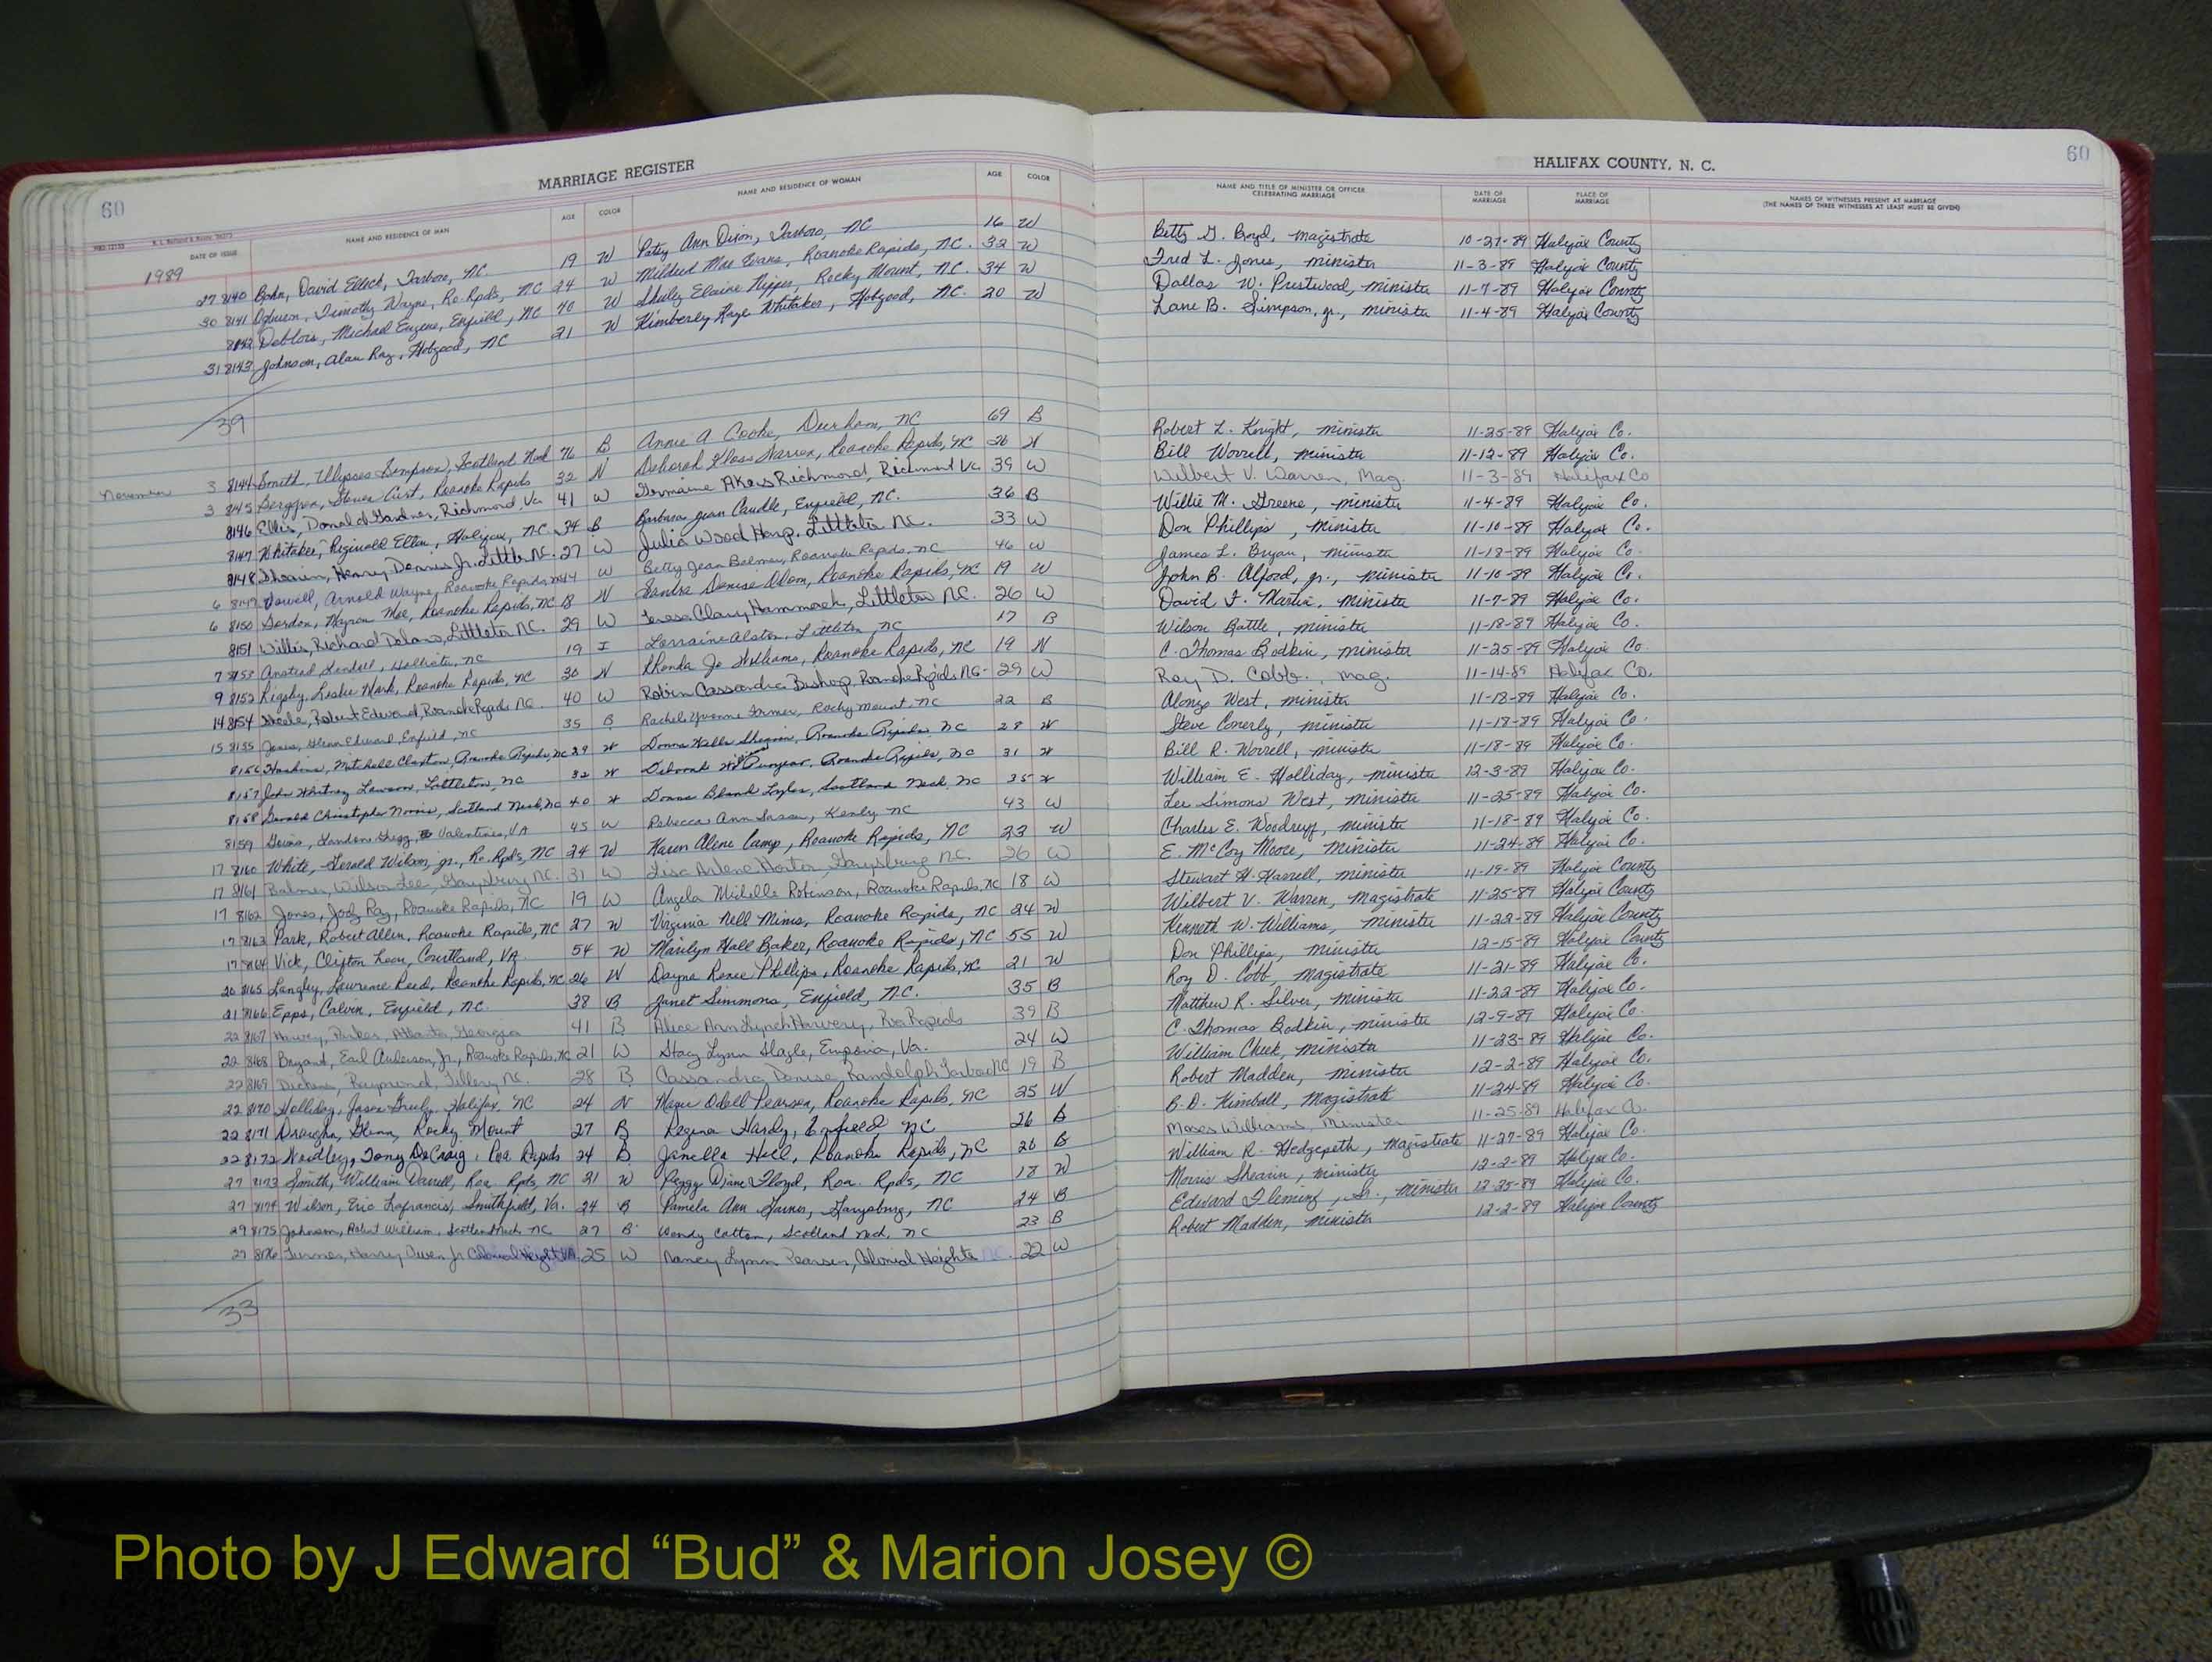 60
MARRIAGE REGISTER
HALIFAX COUNTY, N. C.
60
DATE OF ISSUE NAME AND RESIDENCE OF MAN AGE COLOR NAME AND RESIDENCE OF WOMAN AGE COLOR
NAME AND TITLE OF MINISTER OR OFFICER CELEBRATING MARRIAGE DATE OF MARRIAGE PLACE OF MARRIAGE NAMES OF WITNESSES PRESENT AT MARRIAGE (THE NAMES OF THREE WITNESSES AT LEAST MUST BE GIVEN)
1989
27 8140 David Tarboro, NC 19 W Patsy Ann Dixon, Tarboro, NC 16 W
30 8141 Timothy Wayne, Ro. Rpds, NC 24 W Mildred Mae Evans, Roanoke Rapids, NC. 32 W
8142 Deblois, Michael Eugene, Enfield, NC 40 W Elaine Nipper, Rocky Mount, NC. 34 W
31 8143 Johnson, Alan Ray, Hobgood, NC 21 W Kimberly Kaye Whitaker, Hobgood, NC. 20 W
39
November 3 8144 Smith, Ulysses Simpson, Scotland Neck 76 B Annie A Cooke, Durham, NC 69 B
3 8145 Steven Curt, Roanoke Rapids 32 W Deborah Warren, Roanoke Rapids, NC 26 W
8146 Ellis, Donald Gardner, Richmond, Va 41 W Germaine Akers Richmond, Richmond Va 39 W
8147 Whitaker, Reginald Halifax, NC. 34 B Barbara Jean Caudle, Enfield, NC. 36 B
8148 Shearin, Henry Dennis Jr. NC. 27 W Julia Wood Harp, Littleton NC. 33 W
6 8149 Arnold Wayne, Roanoke Rapids, 44 W Betty Jean Roanoke Rapids, NC 46 W
6 8150 Myron Roanoke Rapids, NC 18 W Sandra Denise Odom, Roanoke Rapids, NC 19 W
8151 Willis, Richard Littleton NC. 29 W Teresa Clary Hammack, Littleton NC. 26 W
7 8153 Hollister, NC 19 I Lorraine Alston, Littleton, NC 17 B
9 8152 Rigsby, Leslie Mark, Roanoke Rapids, NC 30 W Rhonda Jo Williams, Roanoke Rapids, NC 19 W
14 8154 Robert Edward, Roanoke Rapids NC. 40 W Robin Cassandra Bishop, Roanoke Rapids NC. 29 W
15 8155 Glenn Edward, Enfield, NC 35 B Rachel Yvonne Rocky Mount, NC 22 B
8156 Mitchell Clayton, Roanoke Rapids, NC 29 W Donna Roanoke Rapids, NC 28 W
8157 John Whitney Lawson, Littleton, NC 32 W Deborah Roanoke Rapids, NC 31 W
8158 Christopher Norris, Scotland Neck, NC 40 W Donna Bland Taylor, Scotland Neck, NC 35 W
8159 Landon Gregg, Valentines, VA 45 W Rebecca Ann Kenly NC 43 W
17 8160 White, Gerald Wilson, Jr., Ro. Rpds, NC 24 W Karen Alene Camp, Roanoke Rapids, NC 23 W
17 8161 Balmer, Wilson Lee, Garysburg NC. 31 W Lisa Arlene Garysburg NC. 26 W
17 8162 Jones, Jody Ray, Roanoke Rapids, NC 19 W Angela Michelle Robinson, Roanoke Rapids, NC 18 W
17 8163 Park, Robert Allen, Roanoke Rapids, NC 27 W Virginia Nell Mims, Roanoke Rapids, NC 24 W
17 8164 Vick, Clifton Leon, Courtland, VA. 54 W Marilyn Hall Baker, Roanoke Rapids, NC 55 W
20 8165 Langley, Lawrence Reed, Roanoke Rapids, NC 26 W Dayna Renee Phillips, Roanoke Rapids, NC 21 W
21 8166 Epps, Calvin, Enfield, NC. 38 B Janet Simmons, Enfield, N.C. 35 B
22 8167 Harvey, Parker, Atlanta, Georgia 41 B Alice Ann Lynch Harvey, Roa Rapids 39 B
22 8168 Bryant, Earl Anderson, Jr., Roanoke Rapids, NC 21 W Stacy Lynn Slagle, Emporia, Va. 24 W
22 8169 Dickens, Raymond, Tillery NC. 28 B Cassandra Denise Randolph Tarboro NC 19 B
22 8170 Holliday, Jason Halifax, NC 24 W Odell Pearson, Roanoke Rapids, NC 25 W
22 8171 Draughn, Glenn, Rocky Mount 27 B Regina Hardy, Enfield NC 26 B
22 8172 Woodley, Tony DeCraig, Roa Rapids 24 B Janella Hill, Roanoke Rapids, NC 26 B
27 8173 Smith, William Darrell, Roa. Rpds, NC 21 W Peggy Diane Floyd, Roa. Rpds, NC 18 W
27 8174 Wilson, Eric Lafrancis, Smithfield, Va. 24 B Pamela Ann Garner, Garysburg, NC 24 B
29 8175 Johnson, Robert William, Scotland Neck, NC 27 B Wendy Cotton, Scotland Neck, NC 23 B
29 8176 Turner, Harry Owen Jr Colonial Height VA. 25 W Nancy Lynn Pearson, Colonial Heights 22 W
33
Betty G. Boyd, magistrate 10-27-89 Halifax County
Fred L. Jones, minister 11-3-89 Halifax County
Dallas W. Prestwood, minister 11-7-89 Halifax County
Lane B. Simpson, Jr., minister 11-4-89 Halifax County
Robert L. Knight, minister 11-25-89 Halifax Co.
Bill Worrell, minister 11-12-89 Halifax Co.
Wilbert V. Warren, Mag. 11-3-89 Halifax Co
Willie M. Greene, minister 11-4-89 Halifax Co.
Don Phillips, minister 11-10-89 Halifax Co.
James L. Bryan, minister 11-18-89 Halifax Co.
John B. Alford, Jr., minister 11-10-89 Halifax Co.
David F. Martin, minister 11-7-89 Halifax Co.
Wilson Battle, minister 11-18-89 Halifax Co.
C. Thomas Bodkin, minister 11-25-89 Halifax Co.
Roy D. Cobb, Mag. 11-14-89 Halifax Co.
Alonzo West, minister 11-18-89 Halifax Co.
Steve Conerly, minister 11-18-89 Halifax Co.
Bill R. Worrell, minister 11-18-89 Halifax Co.
William E. Holliday, minister 12-3-89 Halifax Co.
Lee Simons West, minister 11-25-89 Halifax Co.
Charles E. Woodruff, minister 11-18-89 Halifax Co.
E. McCoy Moore, minister 11-24-89 Halifax Co.
Stewart H. Harrell, minister 11-19-89 Halifax County
Wilbert V. Warren, magistrate 11-25-89 Halifax County
Kenneth W. Williams, minister 11-22-89 Halifax County
Don Phillips, minister 12-15-89 Halifax County
Roy D. Cobb, magistrate 11-21-89 Halifax Co.
Matthew R. Silver, minister 11-22-89 Halifax Co.
C. Thomas Bodkin, minister 12-9-89 Halifax Co.
William Cheek, minister 11-23-89 Halifax Co.
Robert Madden, minister 12-2-89 Halifax Co.
B.D. Kimball, Magistrate 11-24-89 Halifax Co.
Moses Williams, Minister 11-25-89 Halifax Co.
William R. Hedgepeth, magistrate 11-27-89 Halifax Co.
Morris Shearin, minister 12-2-89 Halifax Co.
Edward Fleming, Sr., minister 12-25-89 Halifax Co.
Robert Madden, minister 12-2-89 Halifax County
Photo by J Edward “Bud” & Marion Josey ©